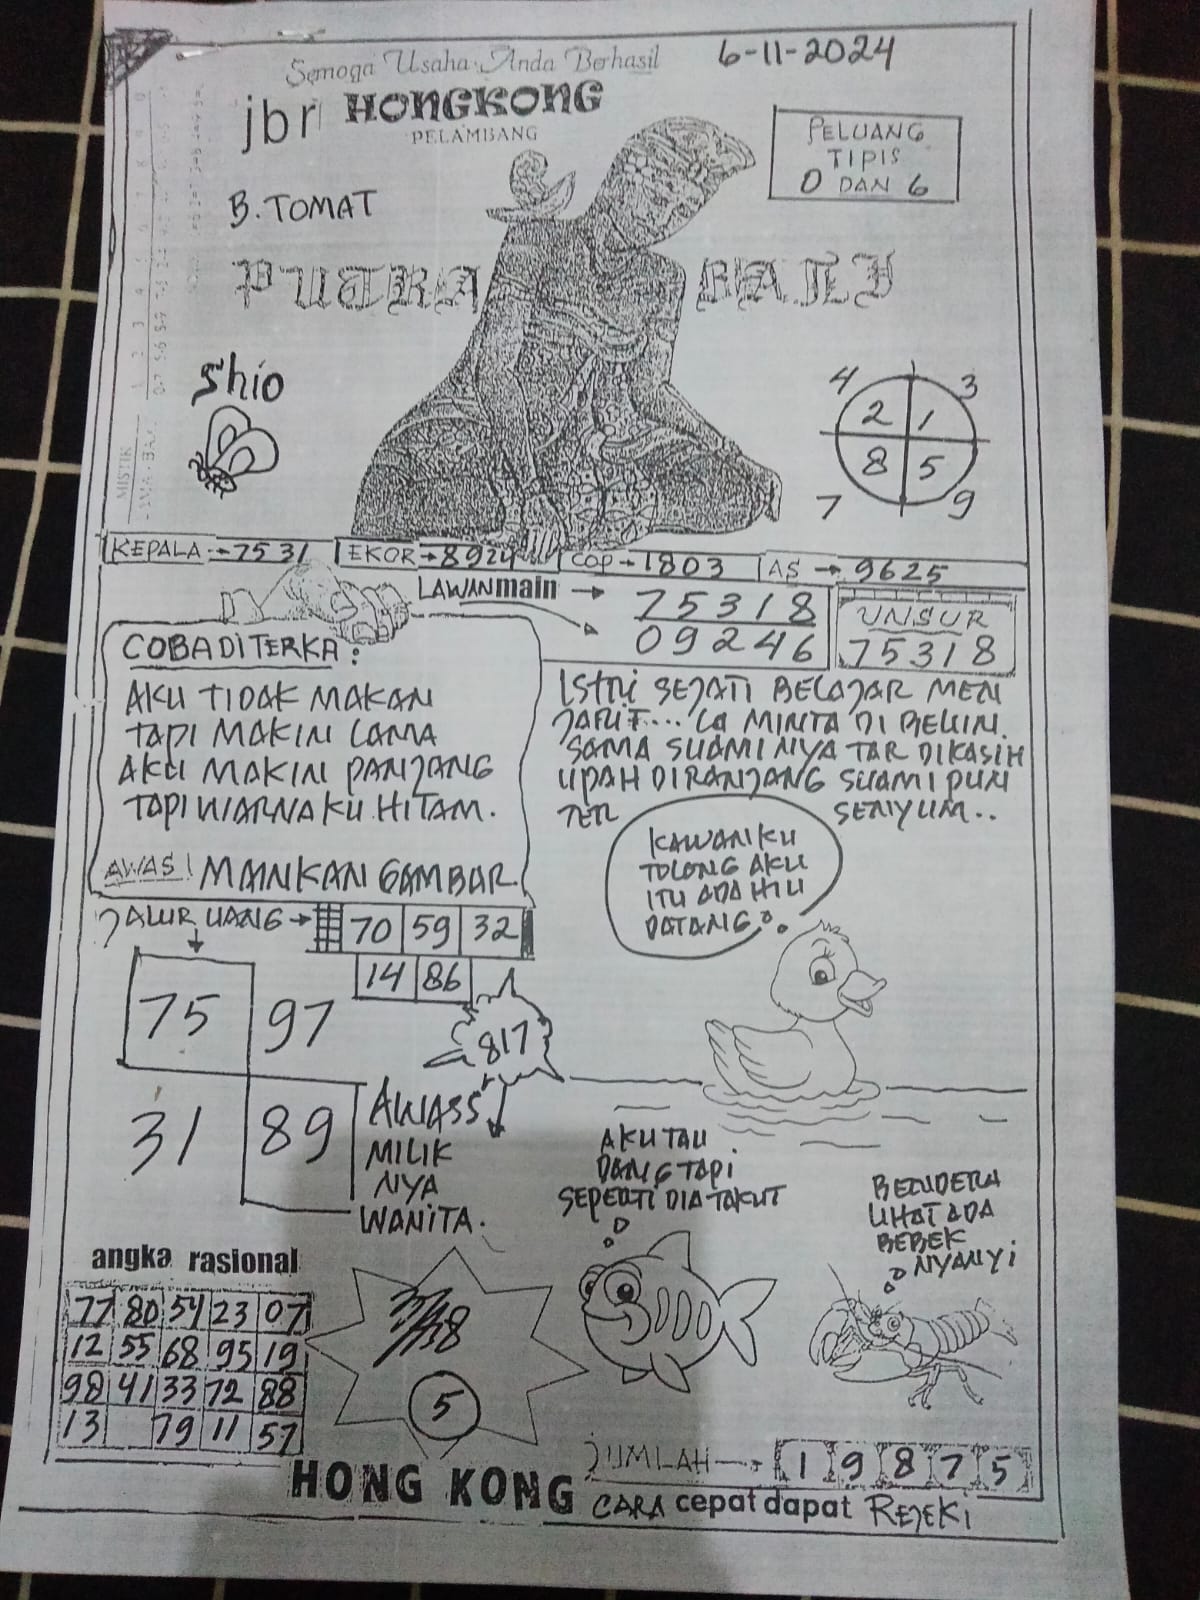 Semoga Usaha Anda Berhasil
6-11-2024
jbr HONGKONG
PELAMBANG
PELUANG
TIPIS
0 DAN 6
B. TOMAT
PUTRA BALI
Shio
4 3
2 1
8 5
7 9
MISTIK
KEPALA → 7531
EKOR → 8924
COP → 1803
AS → 9625
LAWAN main → 75318
09246
UNSUR
75318
COBA DITERKA :
AKU TIDAK MAKAN
TAPI MAKIN LAMA
AKU MAKIN PANJANG
TAPI WARNAKU HITAM.
AWAS! MAINKAN GAMBAR.
ISTRI SEJATI BELAJAR MEN
MINTA DI
SAMA SUAMI NYA TAR DIKASIH
UPAH DIRANJANG SUAMI PUN
TER SENYUM..
KAWANKU
TOLONG AKU
ITU ADA HIU
DATANG
JALUR UANG → 70 59 32
14 86
75 97
31 89
817
AWASS
MILIK
NYA
WANITA.
AKU TAU
DANG TAPI
SEPERTI DIA TAKUT
LIHAT ADA
BEBEK
NYANYI
angka rasional
77 80 54 23 07
12 55 68 95 19
98 41 33 72 88
13 79 11 57
5
JUMLAH → 1 9 8 7 5
HONG KONG
CARA cepat dapat REJEKI